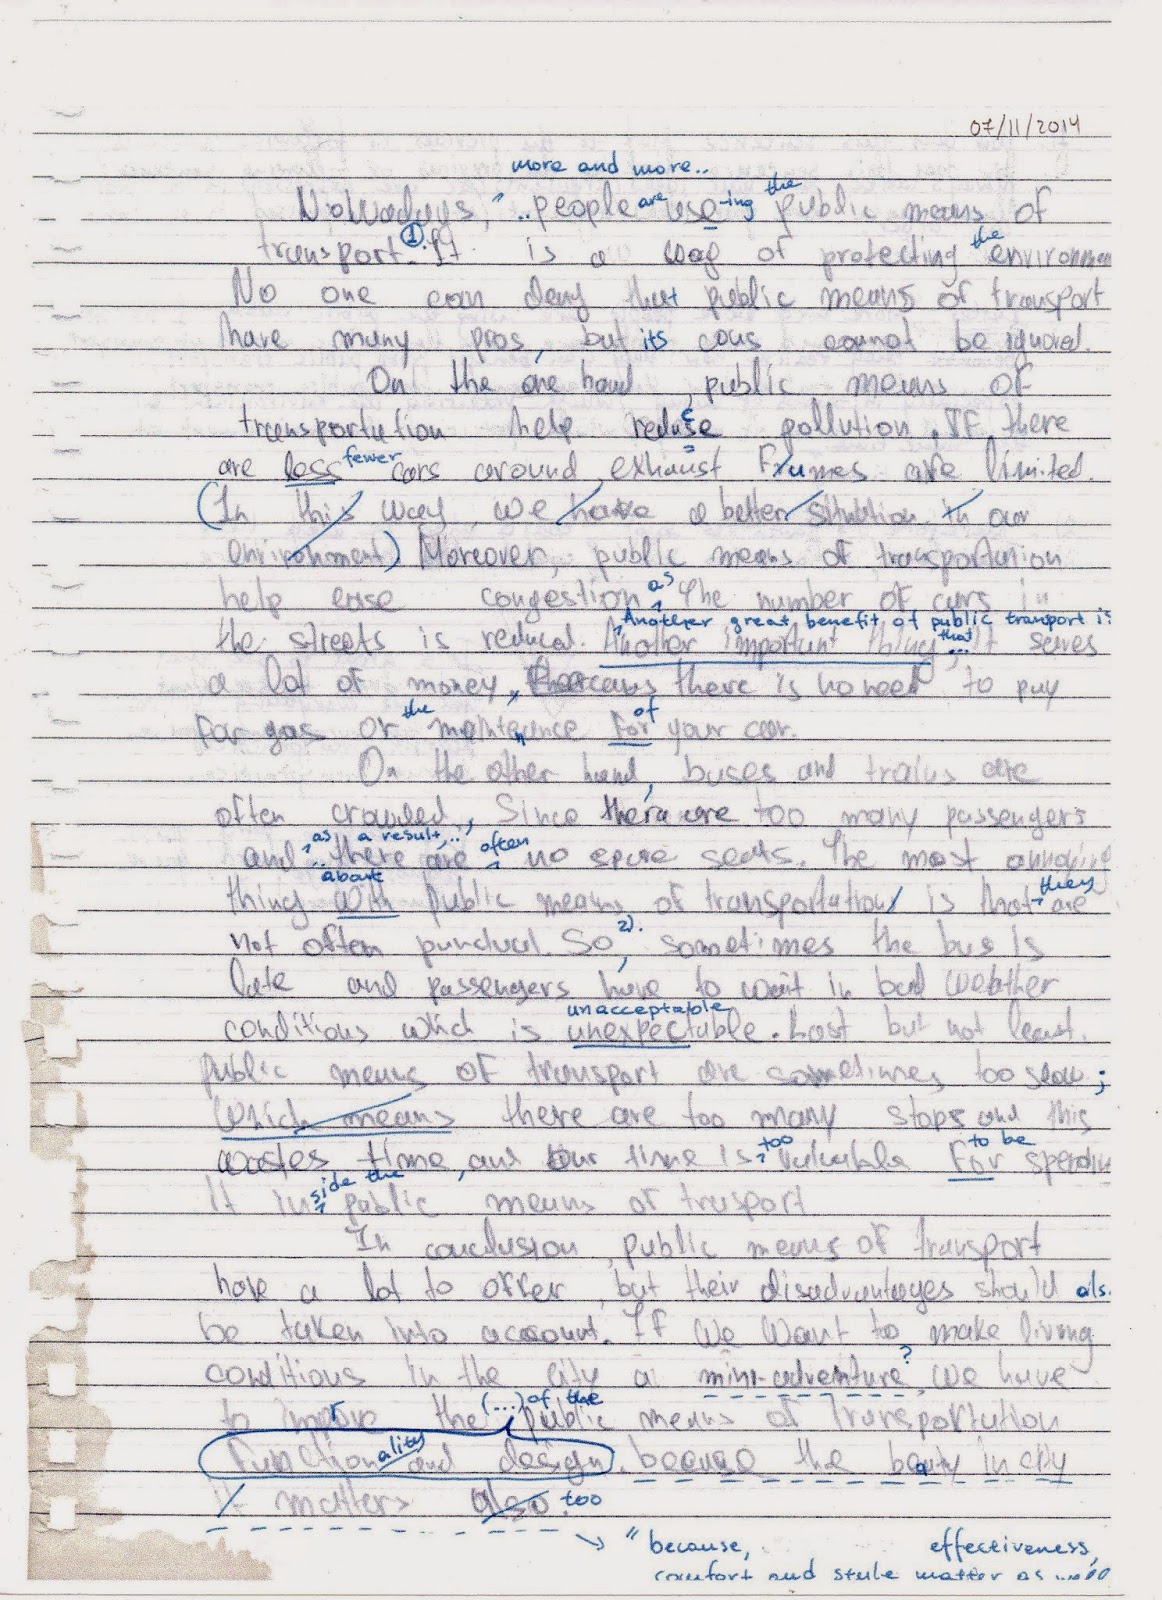 07/11/2014
more and more..
Nowadays, ".. people are use -ing the public means of
transport. ① It is a way of protecting the environmen
No one can deny that public means of transport
have many pros, but its cons cannot be ignored.
On the one hand, public means of
transportation help reduse c pollution. If there
are less fewer cars around, exhaust fumes are limited.
(In this way, we have a better situation in our
environment) Moreover, public means of transportation
help ease congestion as the number of cars in
Another great benefit of public transport is
the streets is reduced. Another important thing, that... it saves
a lot of money, there is no need to pay
for gas or the maintenance for of your car.
On the other hand, buses and trains are
often crowded, Since there are too many passengers
as a result,.. often
and .. there are no spare seats. The most annoying
about they
thing with public means of transportation is that are
not often punctual. So 2), sometimes the bus is
late and passengers have to wait in bad weather
unacceptable
conditions which is unexpectable. Last but not least,
public means of transport are sometimes too slow ;
which means there are too many stops and this
too to be
wastes time, and our time is valuable for spending
side the
it in public means of trasport
In conclusion, public means of transport
have a lot to offer, but their disadvantages should als.
be taken into account. If we want to make living
conditions in the city a mini-adventure ? we have
(...) of the
to improve the public means of transportation
function ality and design. because the beauty in city
it matters also. too
"because, effectiveness,
comfort and style matter as well